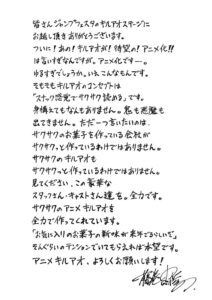 皆さんジャンプフェスタのキルアオステージに
お越し頂きありがとうございます。
ついに!あの!キルアオが!待望の!アニメ化!!
は言いすぎなんですが。アニメ化です…。
ゆるすぎでしょうか。いえ、こんなもんです。
そもそもキルアオのコンセプトは
「スナック感覚でサクサク読める」です。
身構えてもなんもありません。鬼も悪魔も
出てきません。ただ一つ言いたいのは、
サクサクのお菓子を作っている会社が
サクサクっと作っているわけではありません。
サクサクのキルアオも
サクサクっと作っているわけではありません。
見てください、この豪華な
スタッフさん・キャストさん達を。全力です。
サクサクのアニメキルアオを
全力で作ってくれています。
「お気に入りのお菓子の新味が来年でるらしいで」
そんぐらいのテンションでいてもらえれば本望です。
アニメキルアオ、よろしくお願いします!